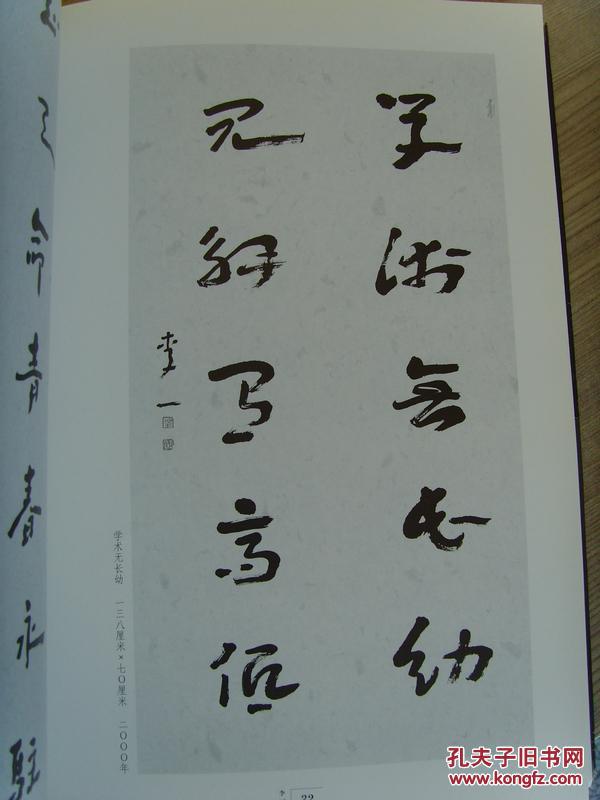 學術無長幼
見解有高低
李一
学术无长幼 一三八厘米×七〇厘米 二〇〇〇年
命青春永驻
李
22
孔夫子旧书网
www.kongfz.com